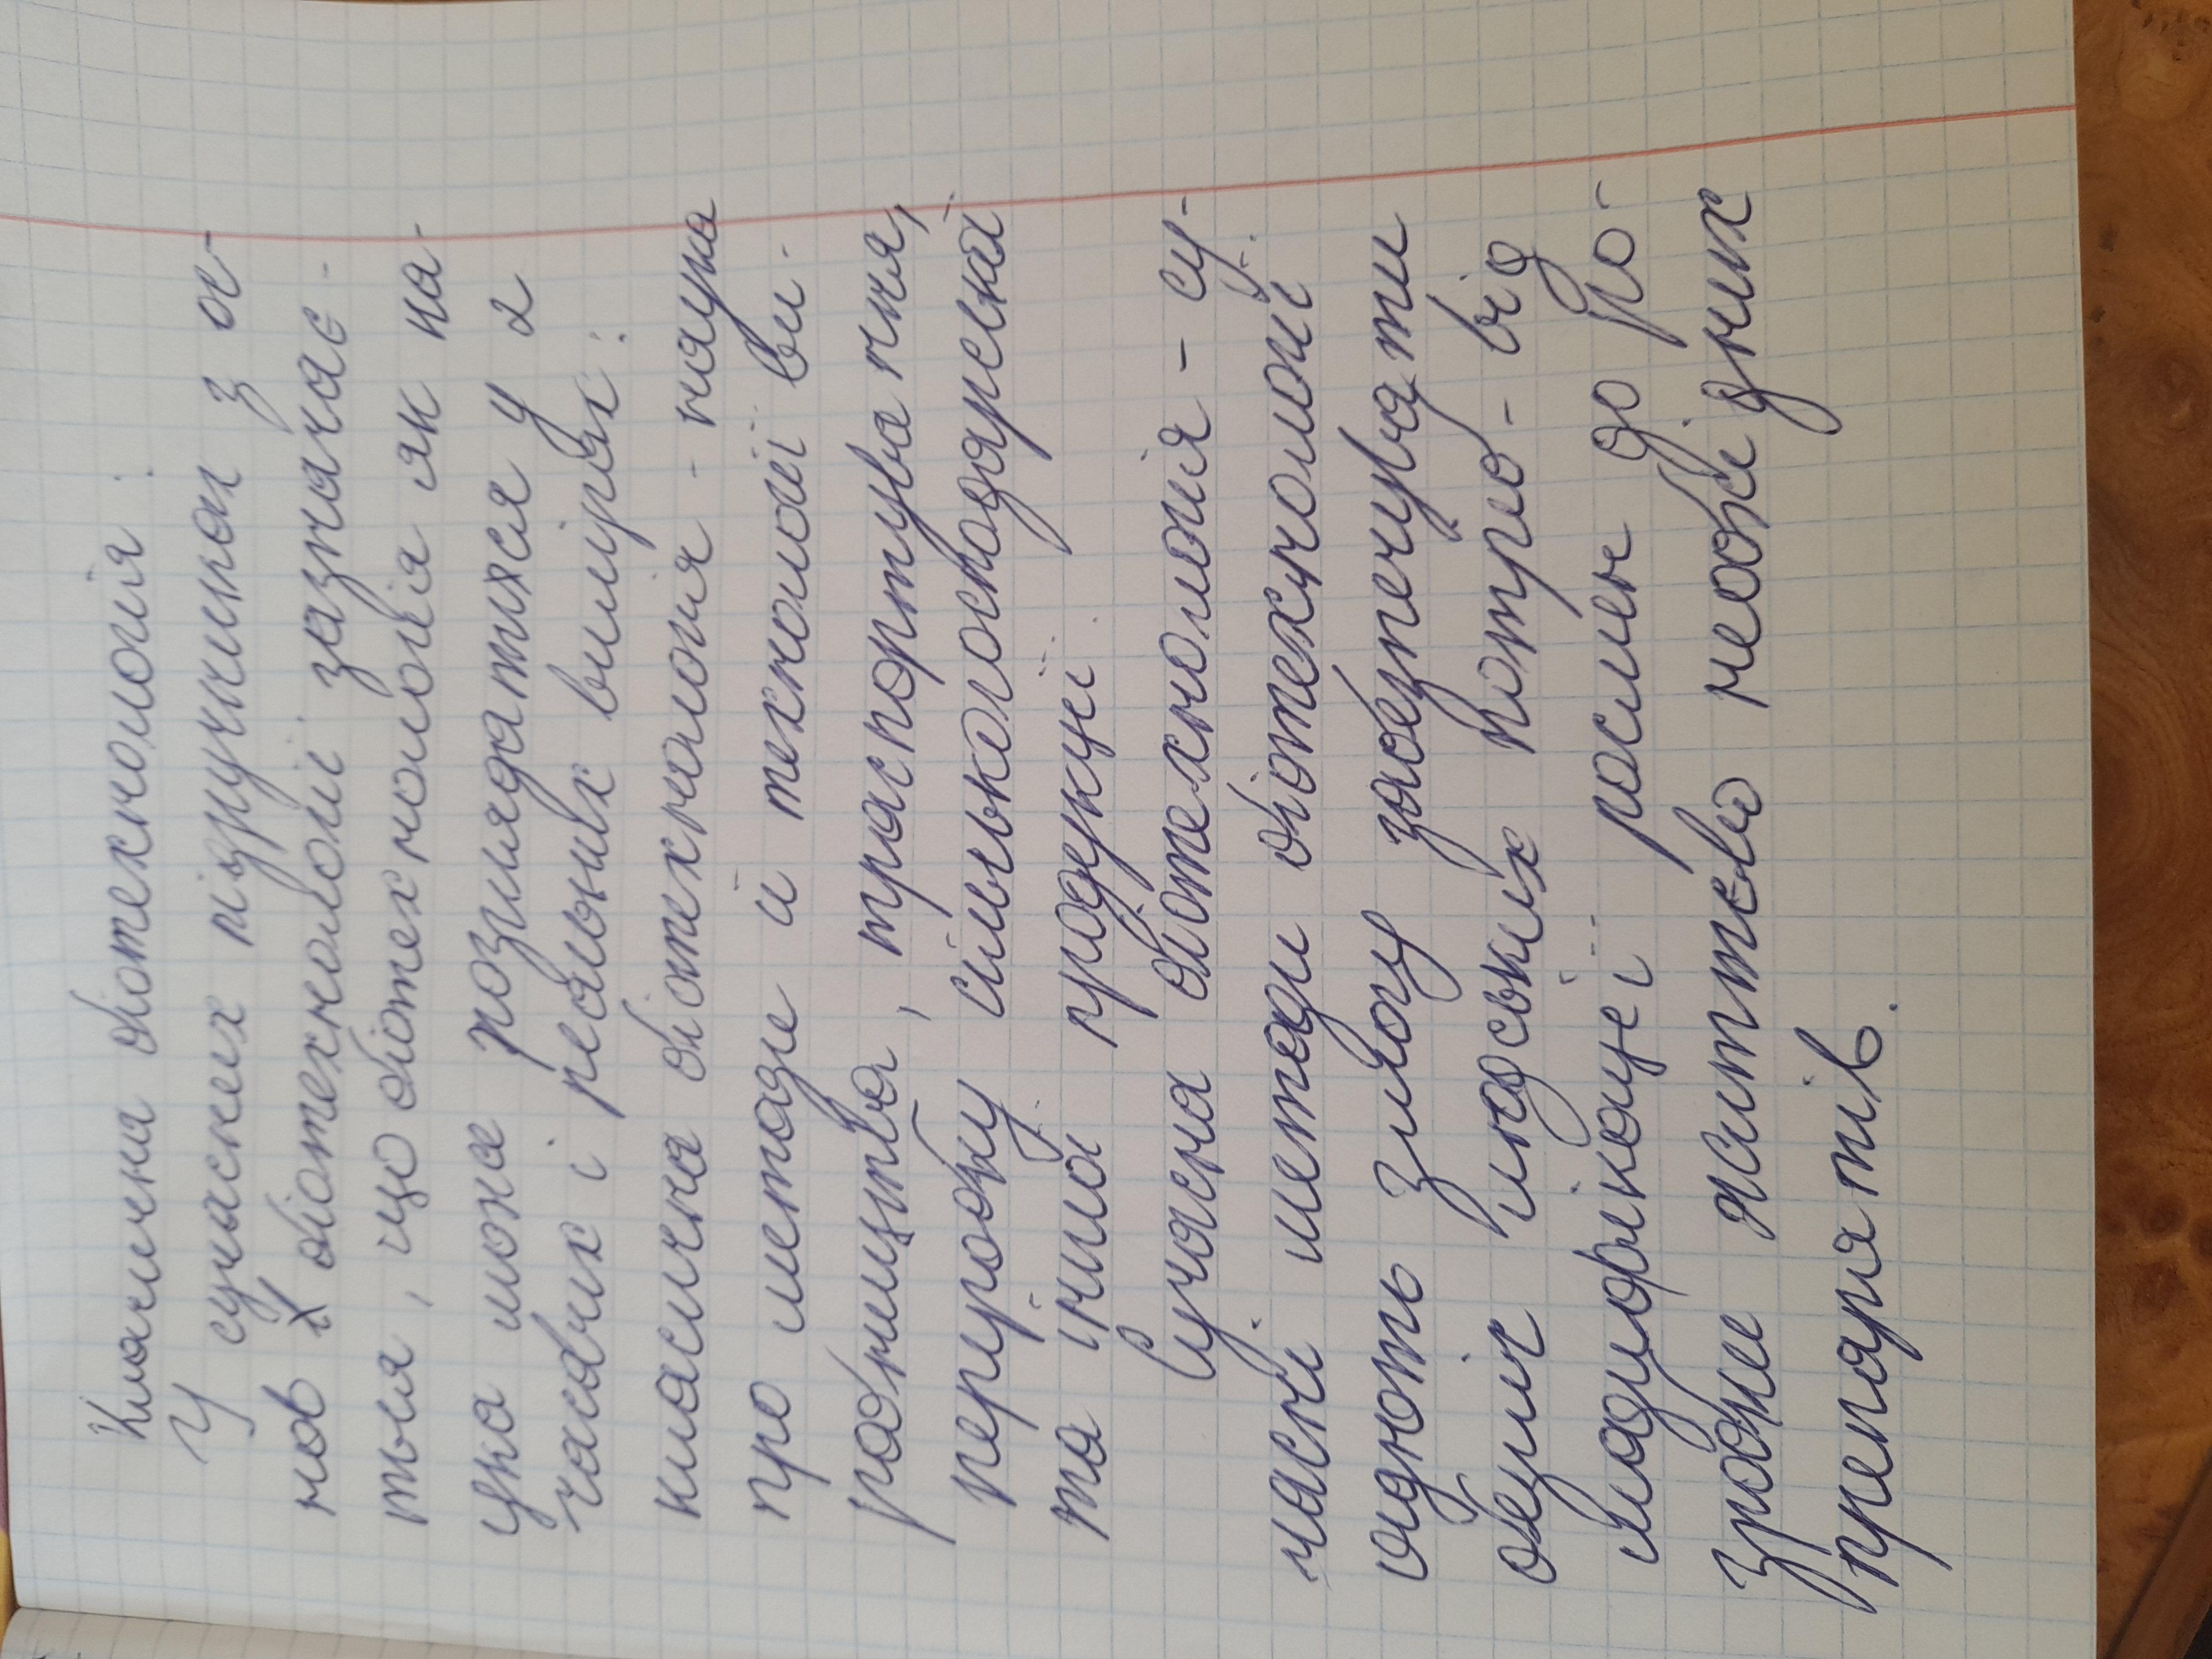 Класична біотехнологія:
У сучасних підручниках з ос-
нов біотехнології зазначаєть-
ться, що біотехнологія як на-
ука може розглядатися у 2
часових і реальних вимірах:
класична біотехнологія - наука
про методи й технології ви-
робництва, траспортування,
переробку сільськогосподарської
та іншої продукції.
Сучасна біотехнологія - су-
часні методи біотехнології
дають змогу забезпечувати
безліч людських потреб - від
модифікації рослин до ро-
зробки життєво необхідних
препаратів.